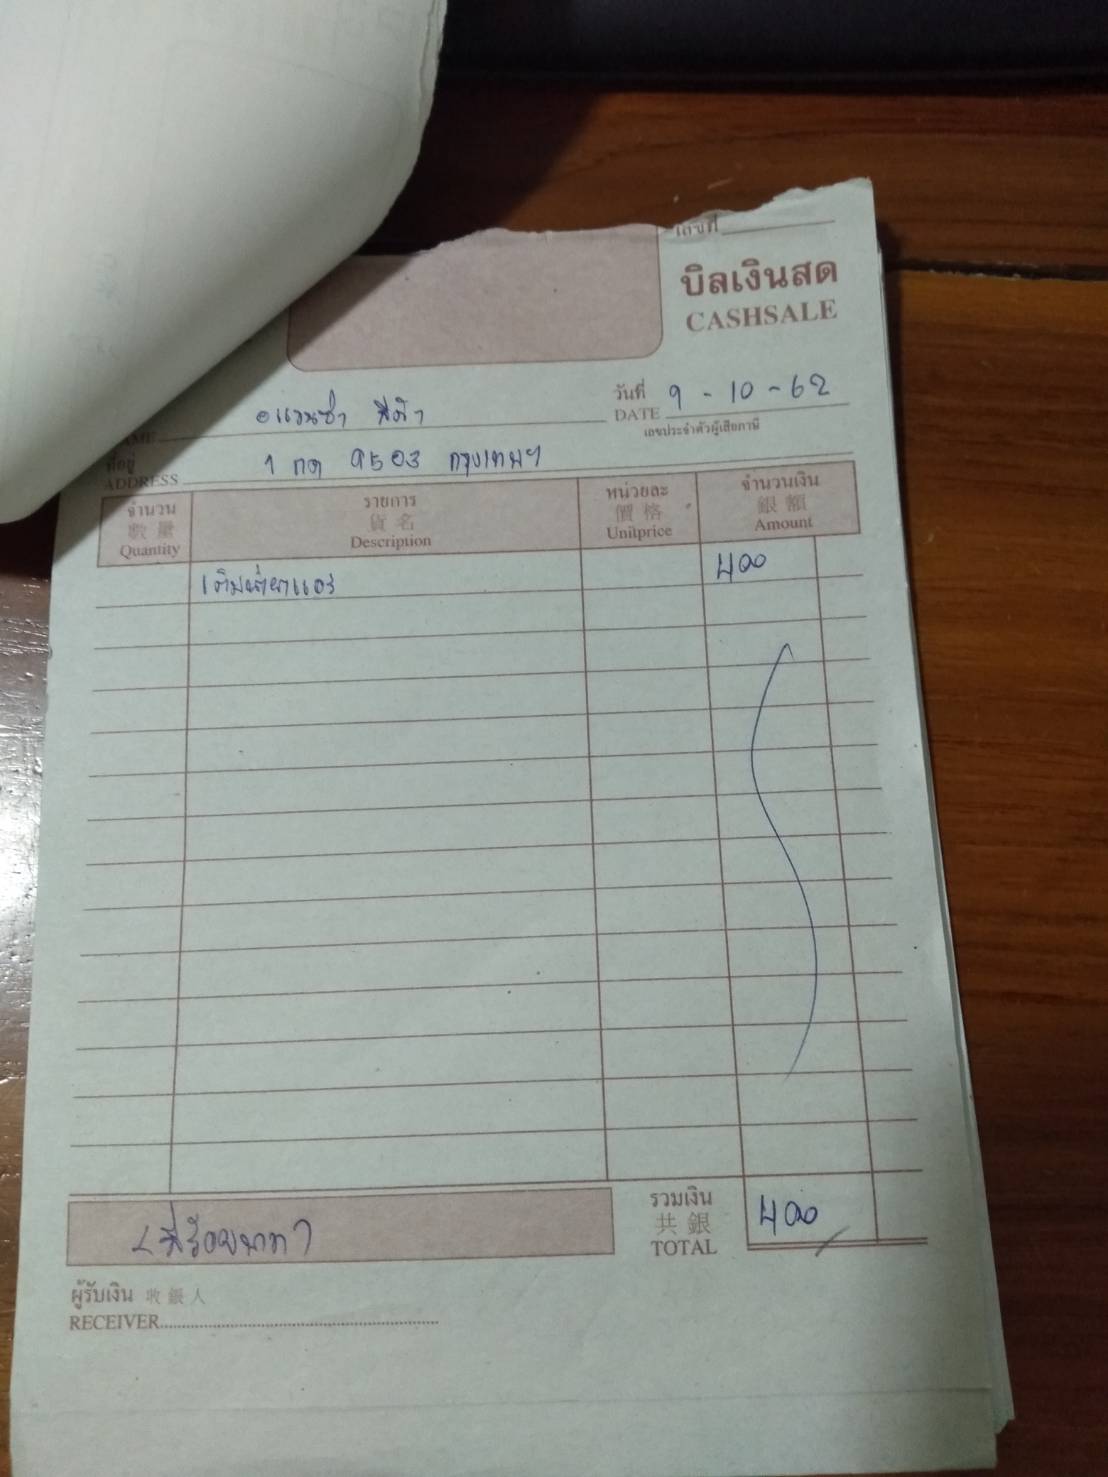 เลขที่
บิลเงินสด
CASHSALE
วันที่ 9 - 10 - 62
DATE
เลขประจำตัวผู้เสียภาษี
NAME
ที่อยู่ 1 กต 9503 กรุงเทพฯ
ADDRESS
จำนวน รายการ หน่วยละ จำนวนเงิน
數量 貨名 價格 銀額
Quantity Description Unitprice Amount
เติมน้ำยาแอร์ 400
รวมเงิน
共銀 400
TOTAL
(สี่ร้อยบาท)
ผู้รับเงิน 收銀人
RECEIVER